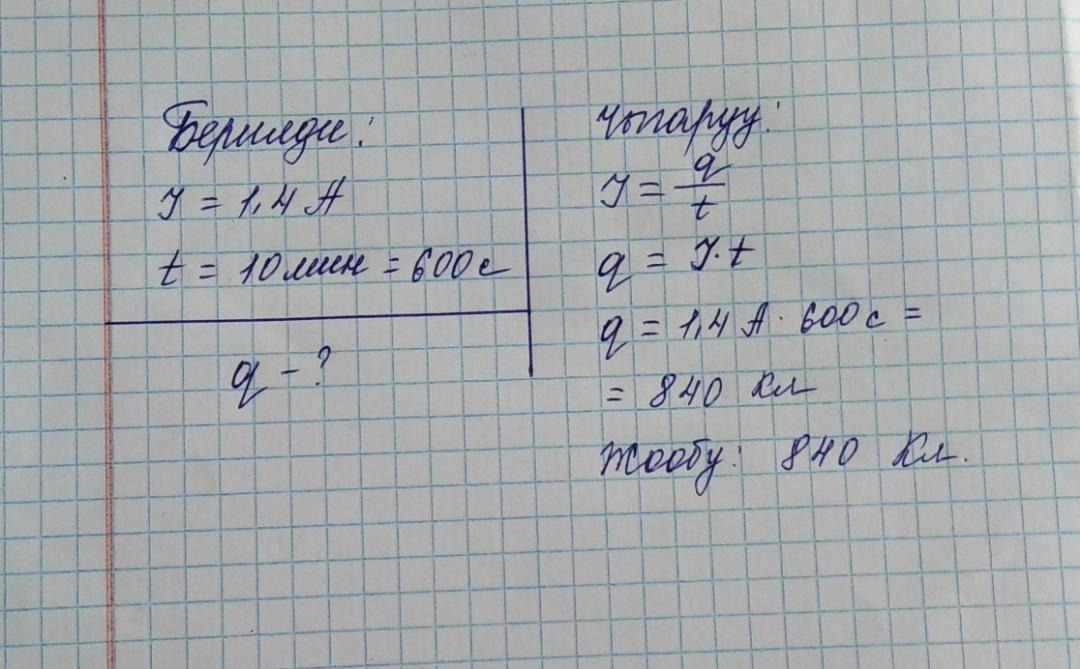 Берилди:
I = 1,4 А
t = 10 мин = 600 с
q - ?
Чыгаруу:
I = q/t
q = I·t
q = 1,4 А · 600 с =
= 840 Кл
Жообу: 840 Кл.